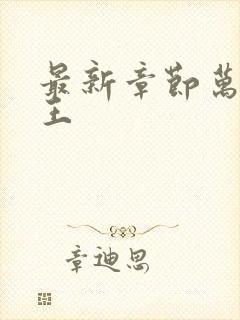 最新章節萬
主
章迪思